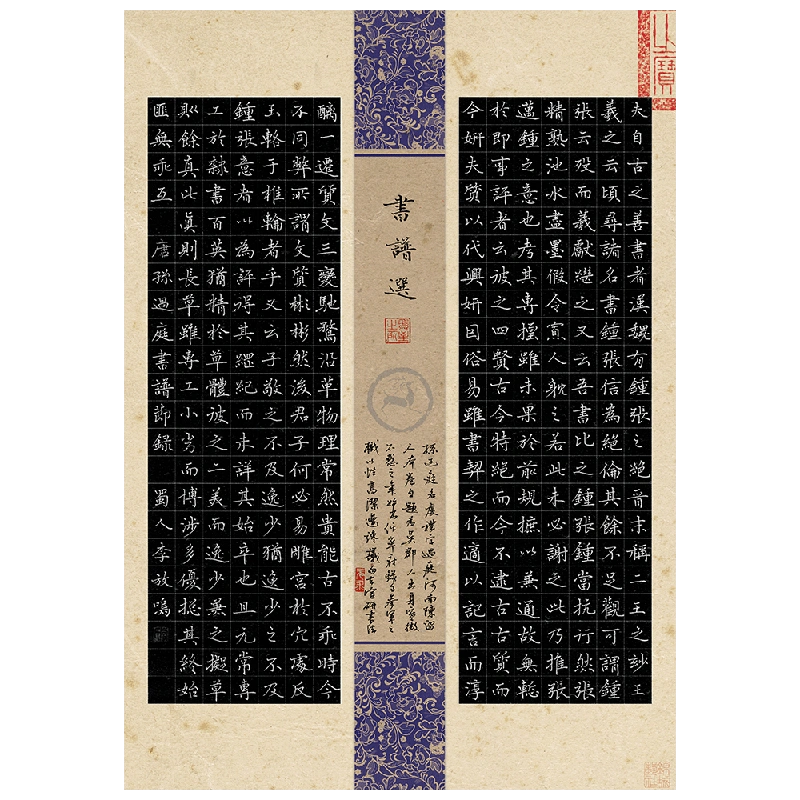 夫自古之善書者漢魏有鍾張之絕晉末稱二王之妙王
羲之云頃尋諸名書鍾張信為絕倫其餘不足觀可謂鍾
張云歿而羲獻繼之又云吾書比之鍾張鍾當抗行然張
精熟池水盡墨假令寡人耽之若此未必謝之此乃推張
邁鍾之意也考其專擅雖未果於前規摭以兼通故無慙
於即事評者云彼之四賢古今特絕而今不逮古古質而
今妍夫質以代興妍因俗易雖書契之作適以記言而淳
書譜選
孫過庭名虔禮字過庭河南陳留
人
醨一遷質文三變馳騖沿革物理常然貴能古不乖時今
不同弊所謂文質彬彬然後君子何必易雕宮於穴處反
玉輅于椎輪者乎又云子敬之不及逸少猶逸少之不及
鍾張意者以為評得其綱紀而未詳其始卒也且元常專
工於隸書百英猶精於草體彼之二美而逸少兼之擬草
則餘真比真則長草雖專工小劣而博涉多優總其終始
匪無乖互 唐孫過庭書譜節錄 蜀人李放鳴